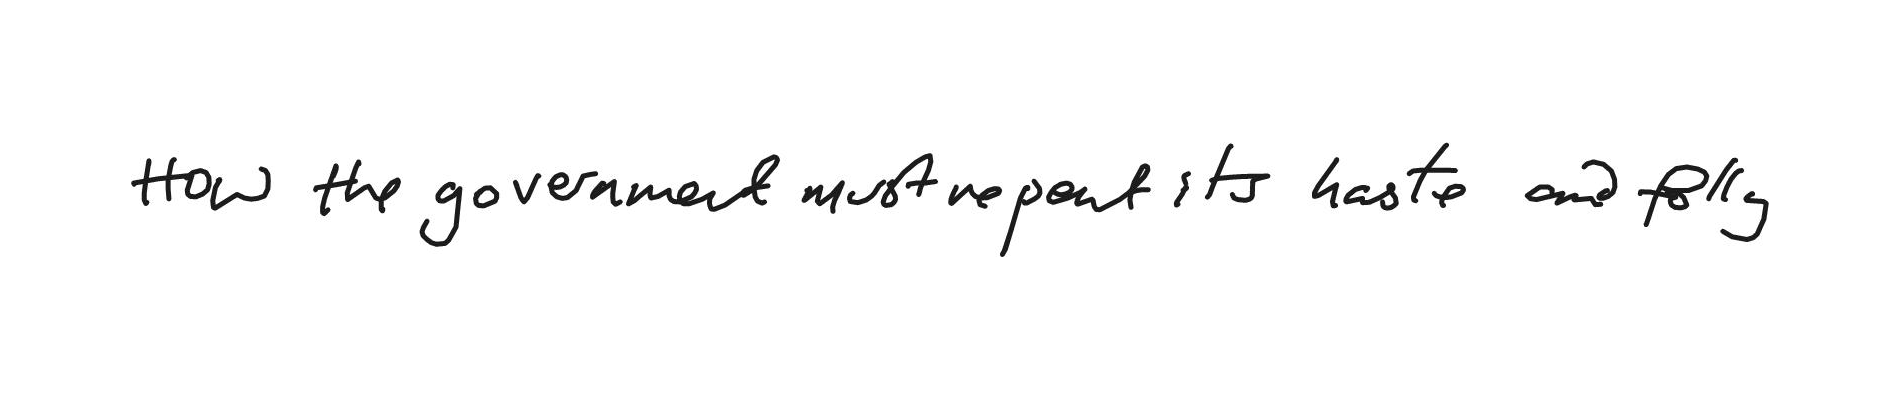 How the government must repent its haste and folly